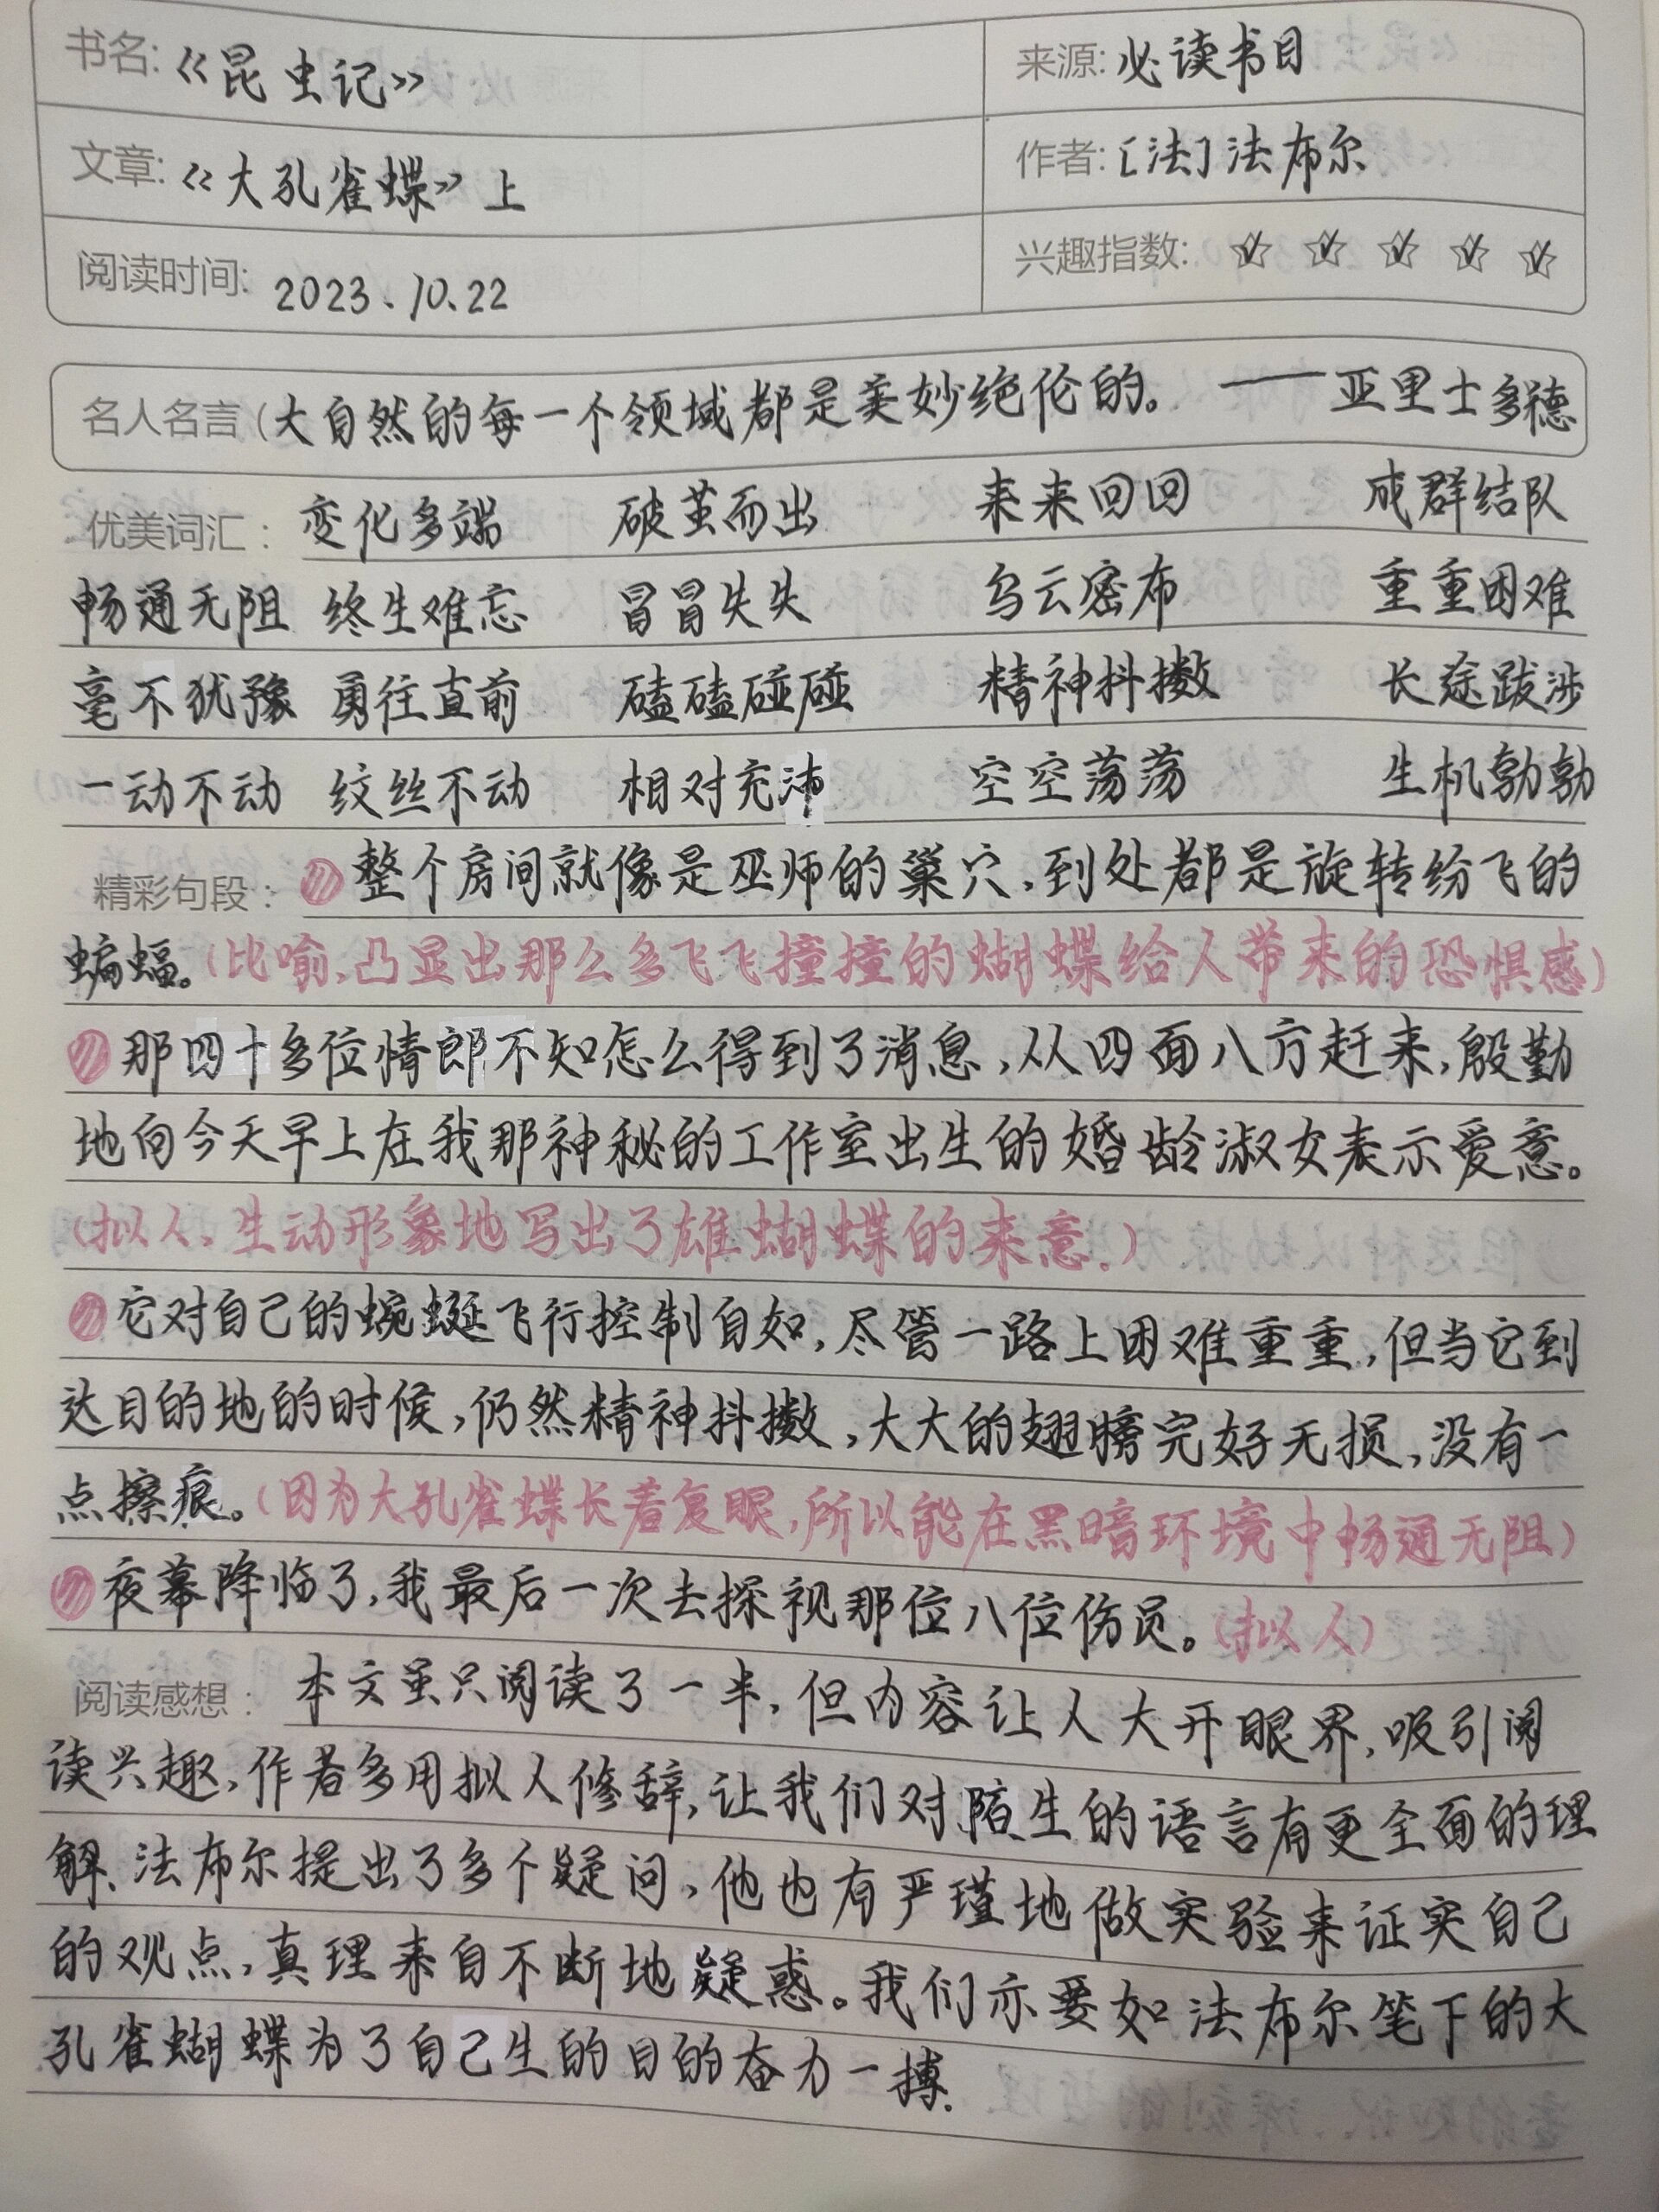 书名: 《昆虫记》 来源: 必读书目
文章: 《大孔雀蝶》上 作者: [法]法布尔
阅读时间: 2023.10.22 兴趣指数: ☆ ☆ ☆ ☆ ☆
名人名言(大自然的每一个领域都是美妙绝伦的。 ——亚里士多德
优美词汇: 变化多端 破茧而出 来来回回 成群结队
畅通无阻 终生难忘 冒冒失失 乌云密布 重重困难
毫不犹豫 勇往直前 磕磕碰碰 精神抖擞 长途跋涉
一动不动 纹丝不动 相对充沛 空空荡荡 生机勃勃
精彩句段: 整个房间就像是巫师的巢穴,到处都是旋转纷飞的
蝙蝠。(比喻,凸显出那么多飞飞撞撞的蝴蝶给人带来的恐惧感)
那四十多位情郎不知怎么得到了消息,从四面八方赶来,殷勤
地向今天早上在我那神秘的工作室出生的婚龄淑女表示爱意。
(拟人,生动形象地写出了雄蝴蝶的来意.)
它对自己的蜿蜒飞行控制自如,尽管一路上困难重重,但当它到
达目的地的时候,仍然精神抖擞,大大的翅膀完好无损,没有一
点擦痕。(因为大孔雀蝶长着复眼,所以能在黑暗环境中畅通无阻)
夜幕降临了,我最后一次去探视那位八位伤员。(拟人)
阅读感想: 本文虽只阅读了一半,但内容让人大开眼界,吸引阅
读兴趣,作者多用拟人修辞,让我们对陌生的语言有更全面的理
解、法布尔提出了多个疑问,他也有严瑾地做实验来证实自己
的观点,真理来自不断地疑惑。我们亦要如法布尔笔下的大
孔雀蝴蝶为了自己生的目的奋力一搏.